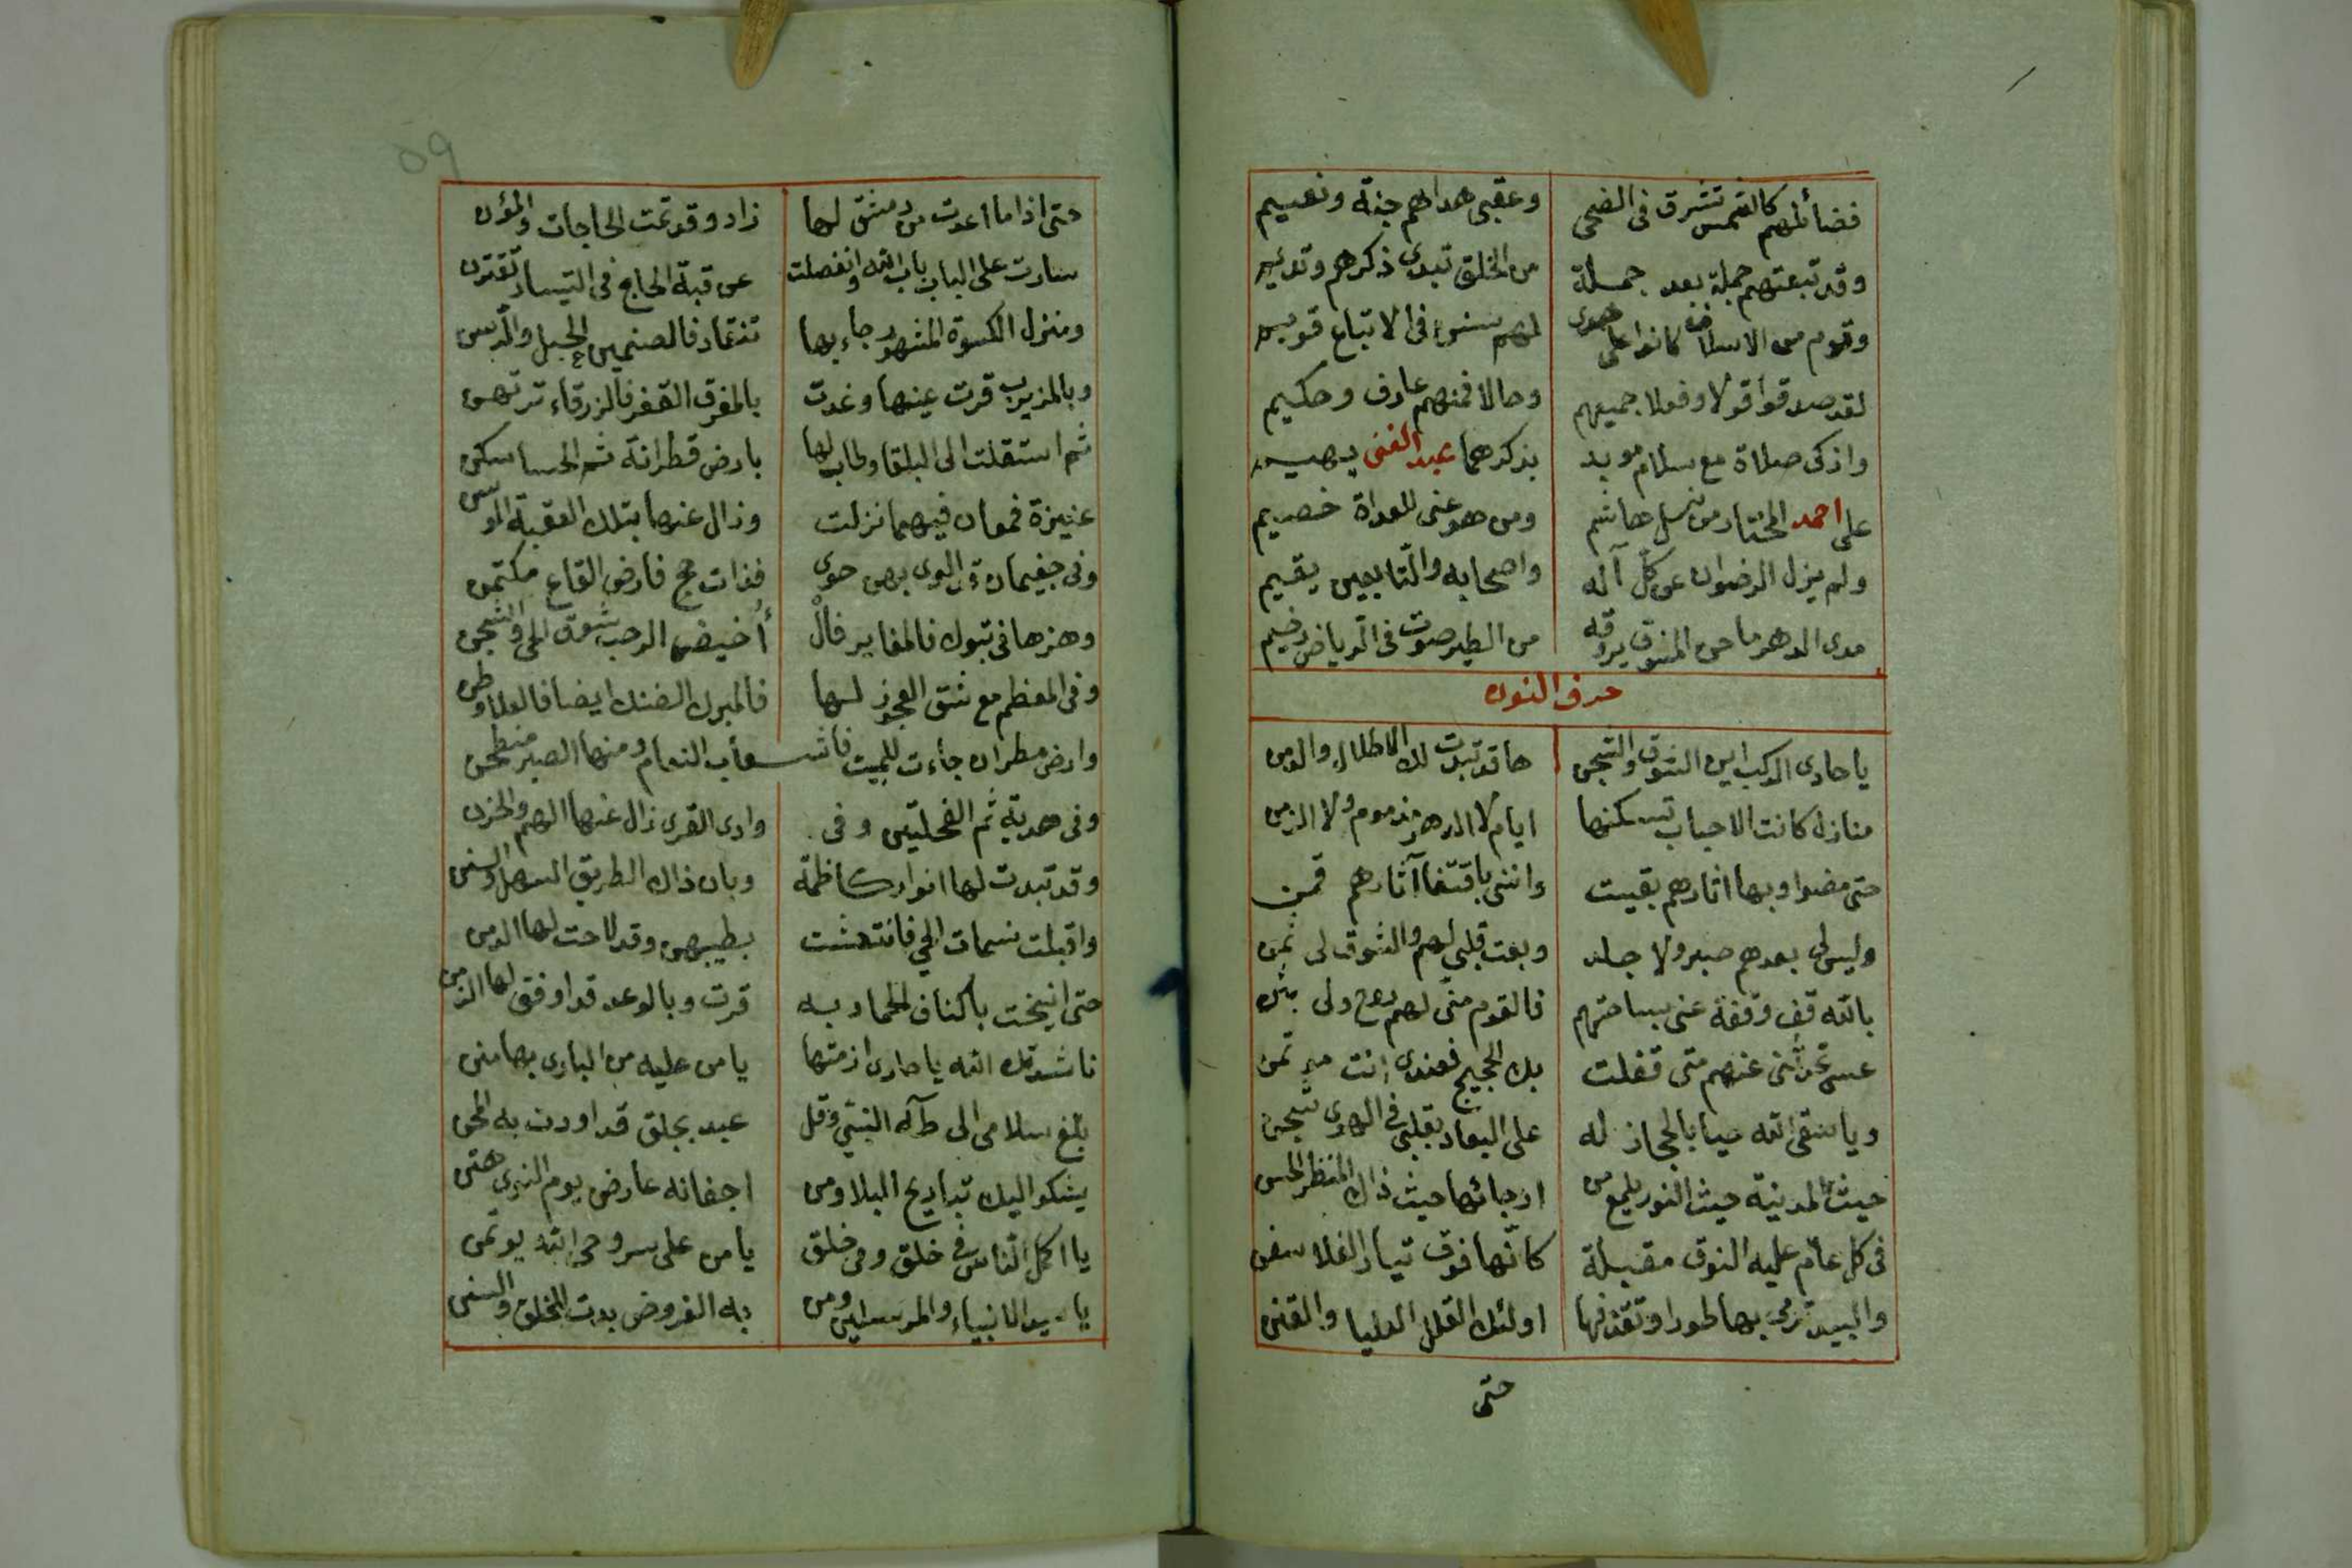 فضائلهم كالشمس تشرق فى الضحى وعقبى هداهم جنة ونعيم
وقد تبعتهم جملة بعد جملة من الخلق تبدى ذكرهم وتديم
وقوم من الاسلاف كانوا على هدى لهم سنن فى الاتباع قويم
لقد صدقوا قولا وفعلا جميعهم وحالا فمنهم عارف وحكيم
وازكى صلاة مع سلام مويد بذكرهما عبد الغنى يهيم
على احمد المختار من نسل هاشم ومن هو عنى للعداة خصيم
ولم يزل الرضوان عن كل آله واصحابه والتابعين يقيم
مدى الدهر ما حن المشوق يروقه من الطير صوت فى الرياض رخيم
حرف النون
يا حادى الركب اين الشوق والشجن ها قد تبدت لك الاطلال والدمن
منازل كانت الاحباب تسكنها ايام لا الدهر مذموم ولا الزمن
حتى مضوا وبها اثارهم بقيت واننى باقتفآ آثارهم قمن
وليس لى بعدهم صبر ولا جلد وبعت قلبى لهم والشوق لى ثمن
بالله قف وقفة عنى بساحتهم فالقوم منى لهم روح ولى بدن
عسى تحدثنى عنهم متى قفلت بك الحجيج فعندى انت مؤتمن
ويا سقى الله حيا بالحجاز له على البعاد بقلبى فى الهوى شجن
حيث المدينة حيث النور يلمع من ارجائها حيث ذاك المنظر الحسن
فى كل عام عليه النوق مقبلة كانها فوق تيار الفلا سفن
والبيد ترمى بها طورا وتقذفها اولئك القلل العليا والقنن
حتى
09
حتى اذا ما اعدت من دمشق لها زاد وقد تمت الحاجات والمؤن
سارت على الباب باب الله وانفصلت عن قبة الحاج فى التيسار تقترن
ومنزل الكسوة المشهور جاء بها تنقاد فالصنمين الجبل والرسن
وبالمزيريب قرت عينها وغدت بالمفرق القفر فالزرقاء ترتهن
ثم استقلت الى البلقا وطاب لها بارض قطرانة ثم الحسا سكن
عنيزة فمعان فيهما نزلت وزال عنها بتلك العقبة الوسن
وفى جغيمان ذ اللوى بهن حوى فذات حج فارض القاع مكتمن
وهزها فى تبوك فالمغاير فال أخيضر الرحب شوق للى والشجن
وفى المعظم مع شق العجوز لها فالمبرك الضنك ايضا فالعلا وطن
وارض مطران جاءت للمبيت فاشعاب النعام ومنها الصبر منطحن
وفى هدية ثم الفحلتين وفى وادى القرى زال عنها الهم والحزن
وقد تبدت لها انوار كاظمة وبان ذاك الطريق السهل والسنن
واقبلت نسمات الحي فانتعشت بطيبهن وقد لاحت لها الدمن
حتى انيخت باكناف الحما وبه قرت وبالوعد قد اوفى لها الزمن
ناشدتك الله يا حادى ازمتها يا من عليه من البارى بها منن
بلغ سلامى الى طه النبي وقل عبد بجلق قد اودت به المحن
يشكو اليك تباريح البلا ومن اجفانه عارض يوم النوى هتن
يا اكمل الناس فى خلق وفى خلق يا من على سر وحى الله يؤتمن
يا سيد الانبياء والمرسلين ومن به الفروض بدت للخلق والسنن